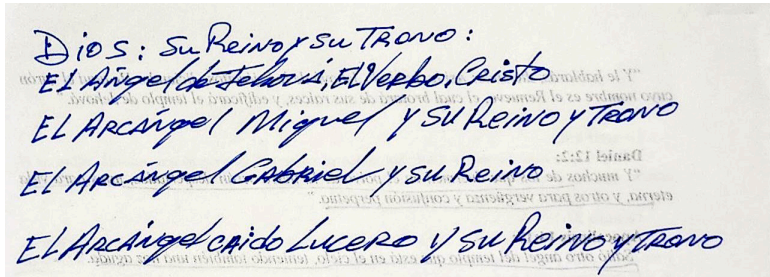 Dios: Su Reino y su Trono:
El Ángel de Jehová, El Verbo, Cristo
El Arcángel Miguel y su Reino y Trono
El Arcángel Gabriel y su Reino
El Arcángel caido Lucero y su Reino y Trono